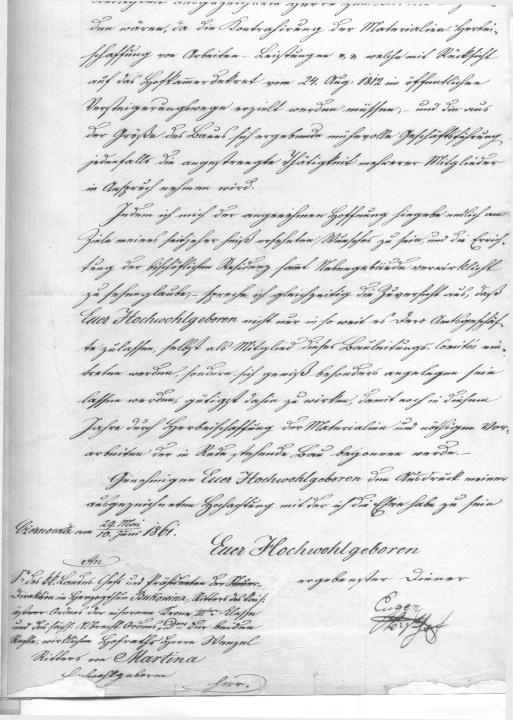 den wären, da die Kontrahirung der Materialien Herbei-
schaffung von Arbeiten - Leistungen welche mit Rücksicht
auf das Hofkammerdekret vom 24. Aug: 1812 in öffentlichen
Versteigerungswege erzielt werden müssen, - und die aus
der Größe des Baues sich ergebende mühevolle Geschäftsführung
jedenfalls die angestrengte Thätigkeit mehrerer Mitglieder
in Anspruch nehmen wird.
Indem ich mich der angenehmen Hoffnung hingebe endlich am
Ziele meines seither heiß ersehnten Wunsches zu sein, und die Errich-
tung der bischöflichen Residenz samt Nebengebäude verwirklicht
zu sehen glaube, - spreche ich gleichzeitig die Zuversicht aus, daß
Euer Hochwohlgeboren nicht nur in so weit es Dero Amtsgeschäf-
te zulassen, selbst als Mitglied dieses Bauleitungs-Comités ein-
treten werden, sondern sich gewiß besonders angelegen sein
lassen werden, gütigst dahin zu wirken, damit noch in diesem
Jahre durch Herbeischaffung der Materialien und nöthigen Vor-
arbeiten der in Rede stehende Bau begonnen werde. -
Genehmigen Euer Hochwohlgeboren den Ausdruck meiner
ausgezeichneten Hochachtung mit der ich die Ehre habe zu sein
Czernowitz am 29. Mai / 10. Juni 1861.
Euer Hochwohlgeboren
ergebenster Diener
Eugen
An
des kk. Landes Chefs und Präsidenten der Steuer-
Direktion im Herzogthum Bukowina, Ritters des kais.
österr. Ordens der eisernen Krone III. Klasse
und des Ordens, der beiden
Rechte, wirklichen Hofraths Herrn Wenzel
Ritters von Martina
Hochwohlgeboren
hier.